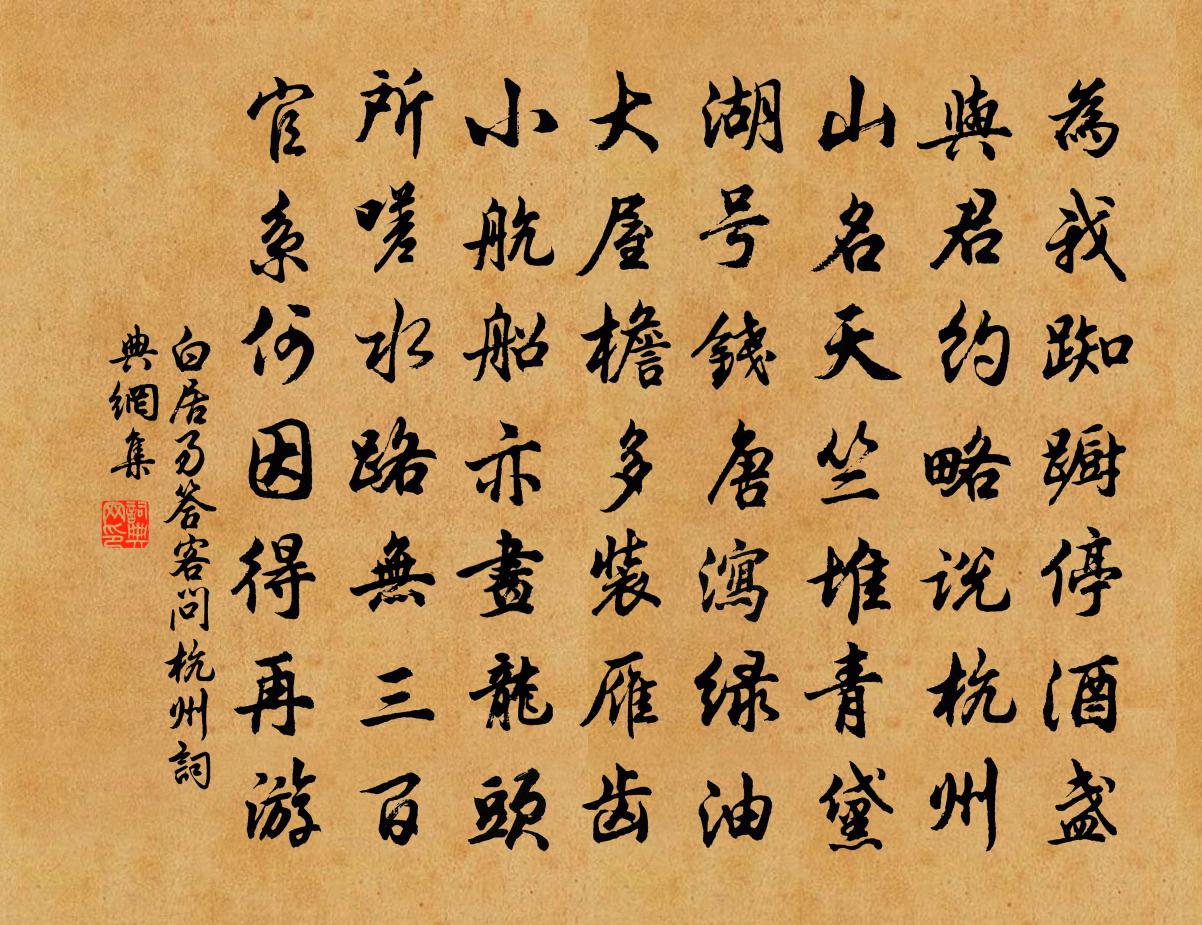 為我踟蹰停酒盏
與君约略说杭州
山名天竺堆青黛
湖号錢唐瀉绿油
大屋檐多装雁齿
小航船亦畫龍頭
所嗟水路無三百
官系何因得再游
白居易答客问杭州詞
典網集
詞典
网印